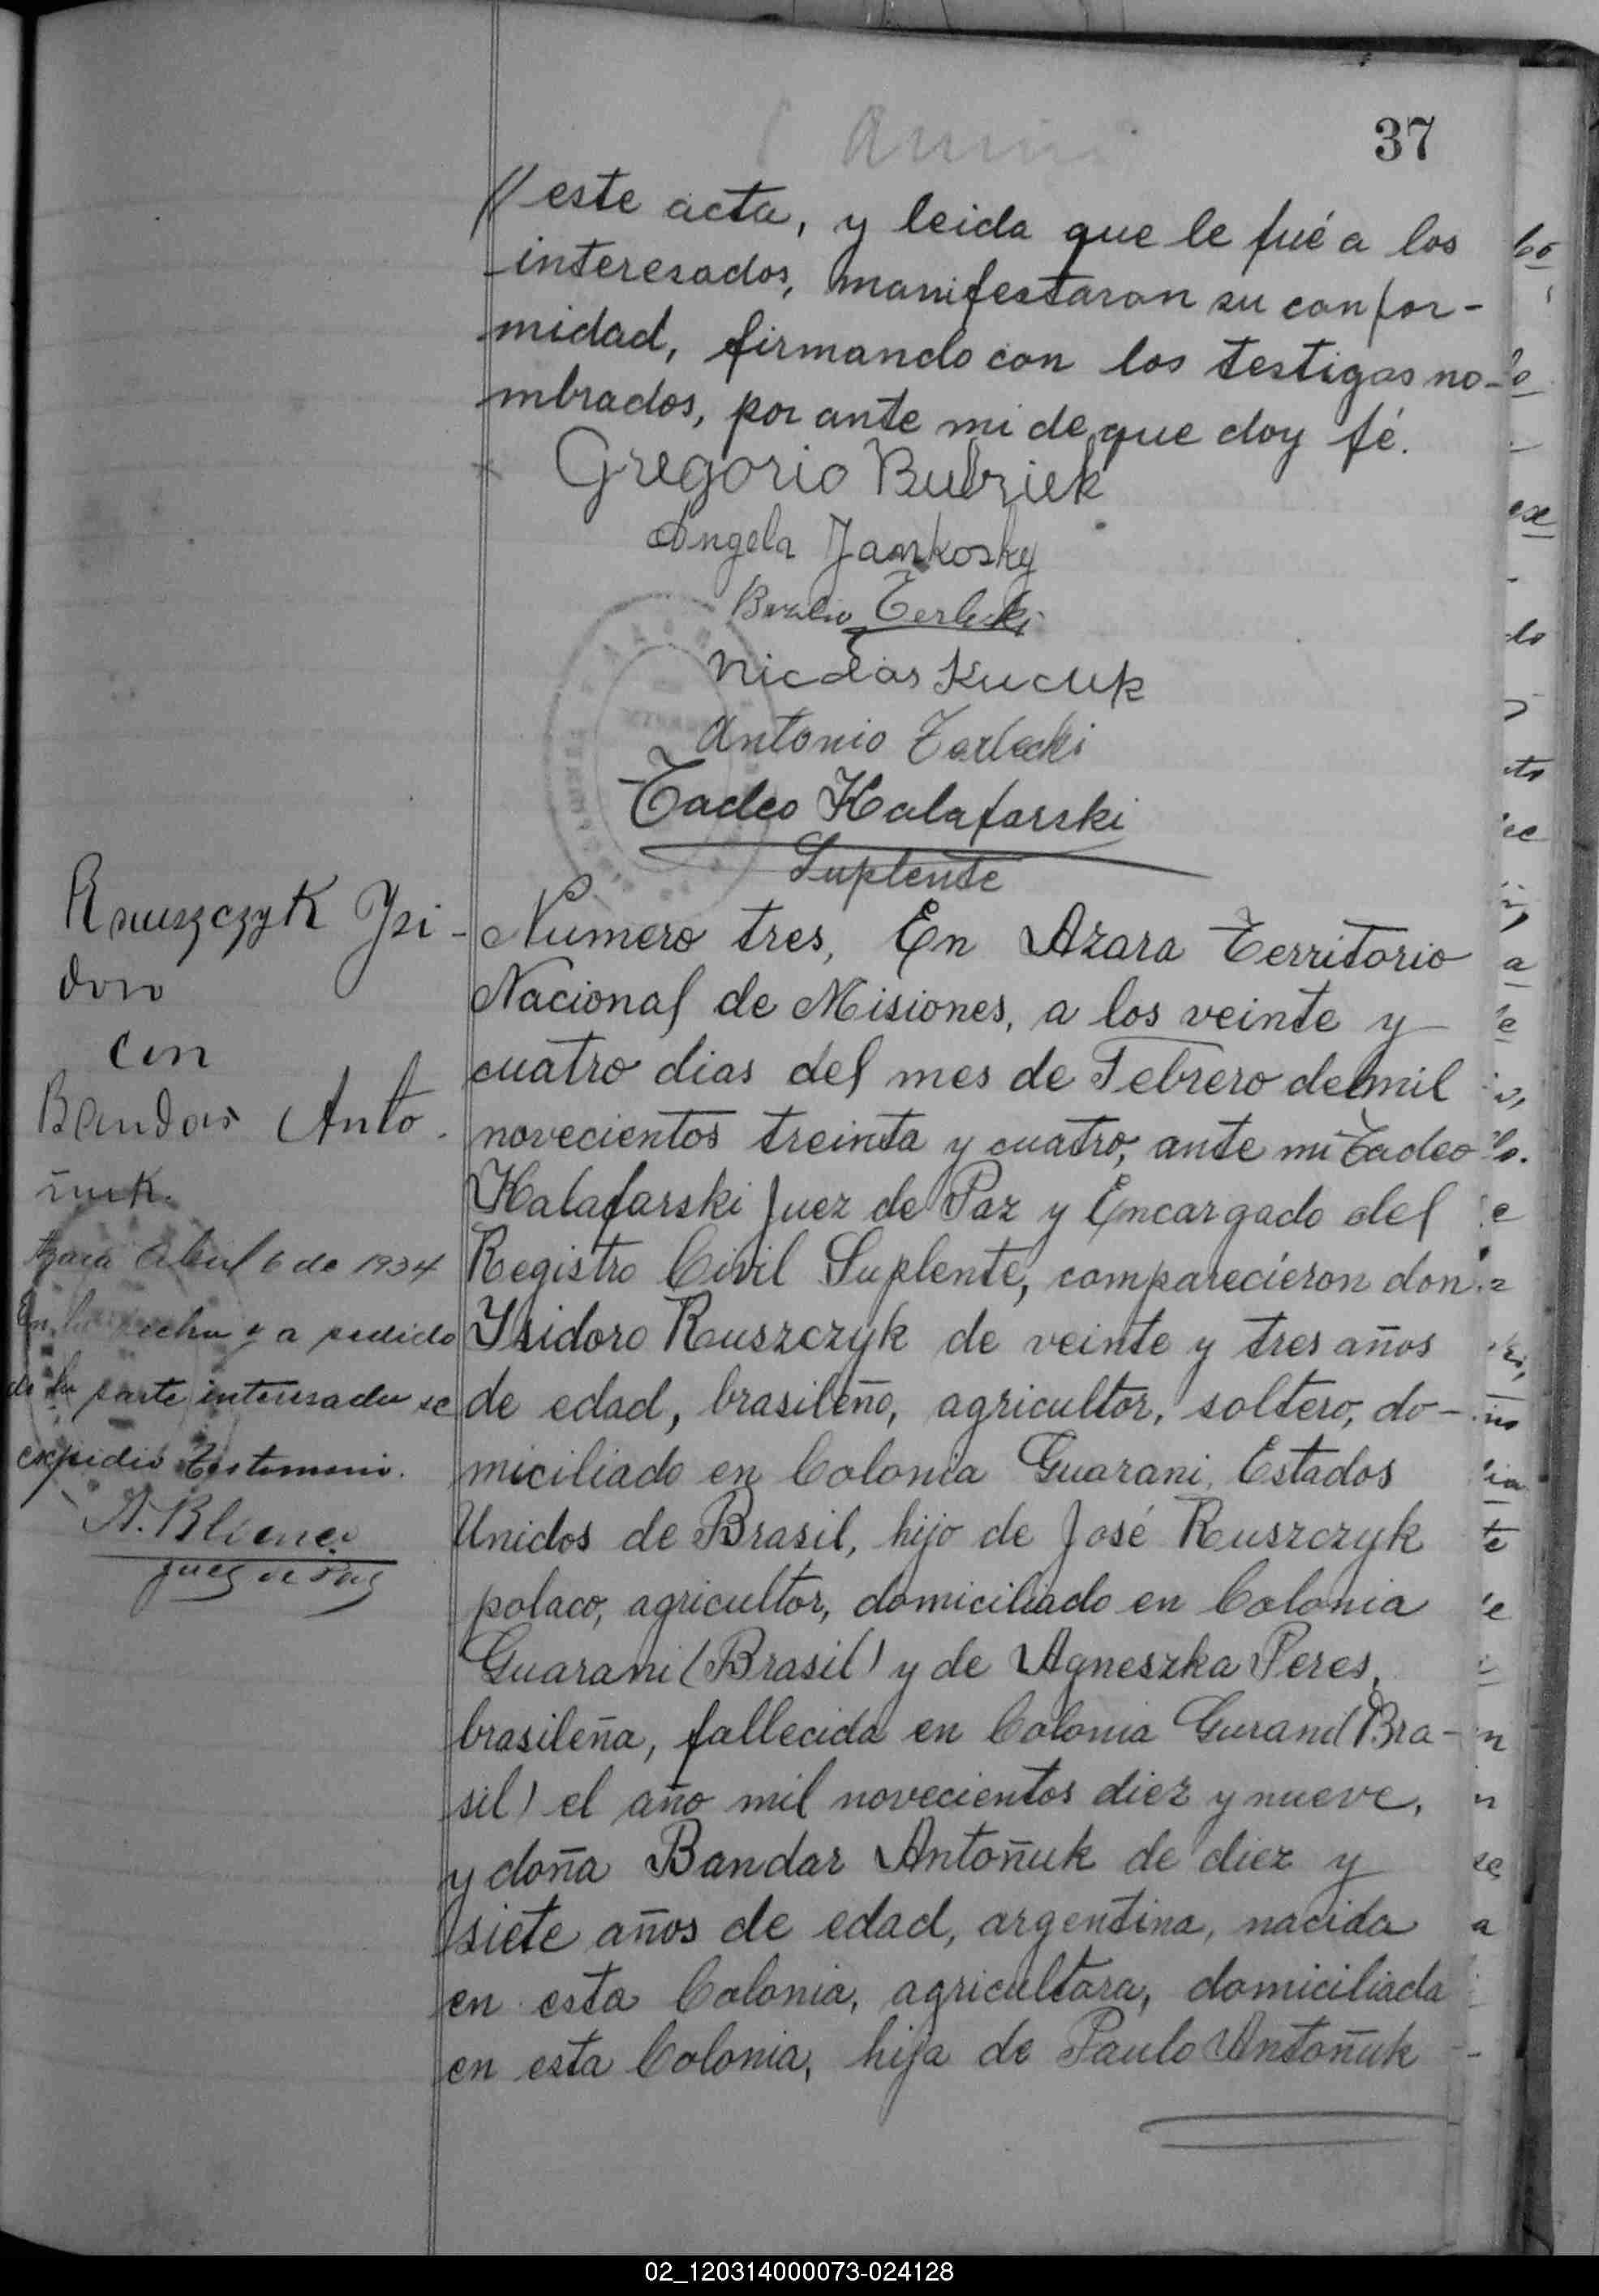 37
// este acta, y leida que le fué a los
interesados, manifestaron su confor-
midad, firmando con los testigos no-
mbrados, por ante mi de que doy fé.
Gregorio Bubziek
Angela Jankosky
Bazilio Terlecki
Nicolas Kuciuk
Antonio Terlecki
Tadeo Halafarski
Suplente
Ruuszczyk Ysi-
doro
con
Bandar Anto.
ñuk.
Azara Abril 6 de 1934
En la fecha y a pedido
de la parte interesada se
expidió testimonio.
Juez de Paz
Numero tres, En Azara Territorio
Nacional de Misiones, a los veinte y
cuatro dias del mes de Febrero de mil
novecientos treinta y cuatro, ante mi Tadeo
Halafarski Juez de Paz y Encargado del
Registro Civil Suplente, comparecieron don
Ysidoro Ruszczyk de veinte y tres años
de edad, brasileño, agricultor, soltero, do-
miciliado en Colonia Guarani, Estados
Unidos de Brasil, hijo de José Ruszczyk
polaco, agricultor, domiciliado en Colonia
Guarani (Brasil) y de Agneszka Peres,
brasileña, fallecida en Colonia Gurani (Bra-
sil) el año mil novecientos diez y nueve,
y doña Bandar Antoñuk de diez y
siete años de edad, argentina, nacida
en esta Colonia, agricultora, domiciliada
en esta Colonia, hija de Paulo Antoñuk
02_120314000073-024128